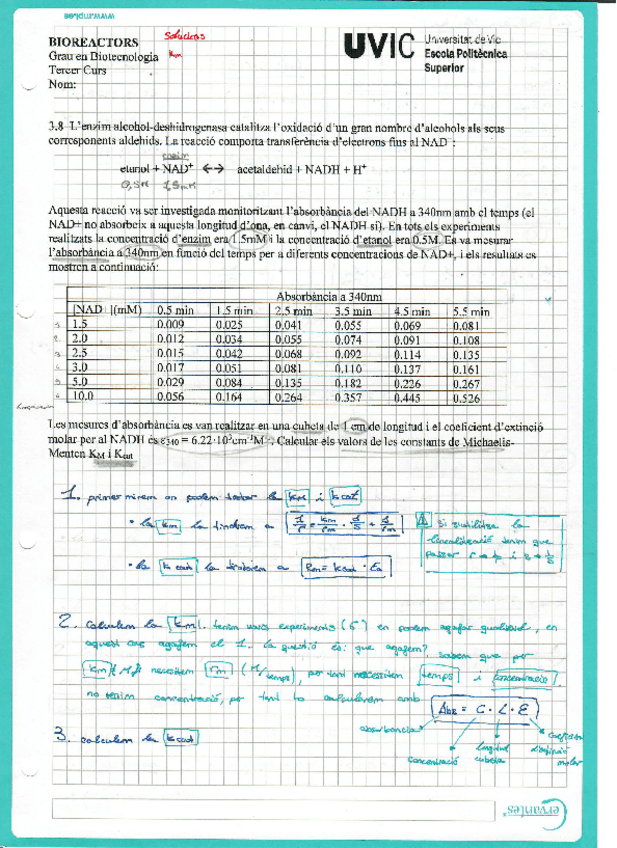 www.mplas
BIOREACTORS
Solucions
Grau en Biotecnologia
Km
Tercer Curs
Nom:
UVIC
Universitat de Vic
Escola Politècnica
Superior
3.8 L'enzim alcohol-deshidrogenasa catalitza l'oxidació d'un gran nombre d'alcohols als seus
corresponents aldehids. La reacció comporta transferència d'electrons fins al NAD+:
etanol + NAD+ ↔ acetaldehid + NADH + H+
0,5M 1,5mM
Aquesta reacció va ser investigada monitoritzant l'absorbància del NADH a 340nm amb el temps (el
NAD+ no absorbeix a aquesta longitud d'ona, en canvi, el NADH si). En tots els experiments
realitzats la concentració d'enzim era 1.5mM i la concentració d'etanol era 0.5M. Es va mesurar
l'absorbància a 340nm en funció del temps per a diferents concentracions de NAD+, i els resultats es
mostren a continuació:
Absorbància a 340nm
[NAD+](mM) 0.5 min 1.5 min 2.5 min 3.5 min 4.5 min 5.5 min
1.5 0.009 0.025 0.041 0.055 0.069 0.081
2.0 0.012 0.034 0.055 0.074 0.091 0.108
2.5 0.015 0.042 0.068 0.092 0.114 0.135
3.0 0.017 0.051 0.081 0.110 0.137 0.161
5.0 0.029 0.084 0.135 0.182 0.226 0.267
10.0 0.056 0.164 0.264 0.357 0.445 0.526
Les mesures d'absorbància es van realitzar en una cubeta de 1 cm de longitud i el coeficient d'extinció
molar per al NADH és ε340 = 6.22·10³cm⁻¹M⁻¹. Calcular els valors de les constants de Michaelis-
Menten KM i Kcat
1. primer mirem on podem trobar la km i kcat
• la km la trobem a 1/r = km/rm · 1/s + 1/rm
⚠ si s'utilitza la
linealització tenim que
passar r → 1/r i s → 1/s
• la kcat la trobem a Rm = kcat · E0
2. calculem la km. tenim varis experiments (6) en podem agafar qualsevol, en
aquest cas agafem el 1. la questió és: que agafem?, sabem que per
km necessitem rm (M/temps), per tant necessitem temps i concentració.
no tenim concentració, per tant ho calcularem amb
Abs = C · L · ε
absorbancia
concentració
longitud
cubeta
coeficient
d'extinció
molar
3. calculem la kcat
cervantes